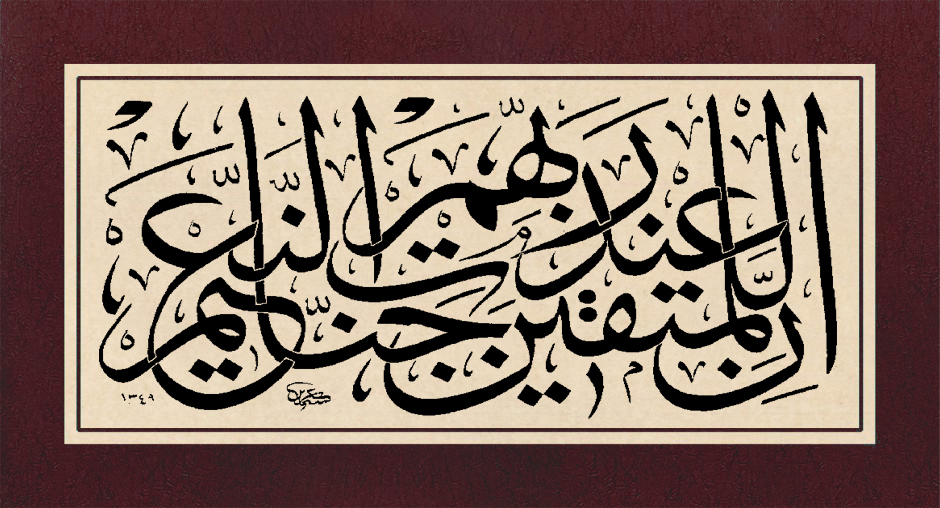 اِنَّ لِلْمُتَّقِينَ عِنْدَ رَبِّهِمْ جَنَّاتِ النَّعِيمِ
١٣٤٩